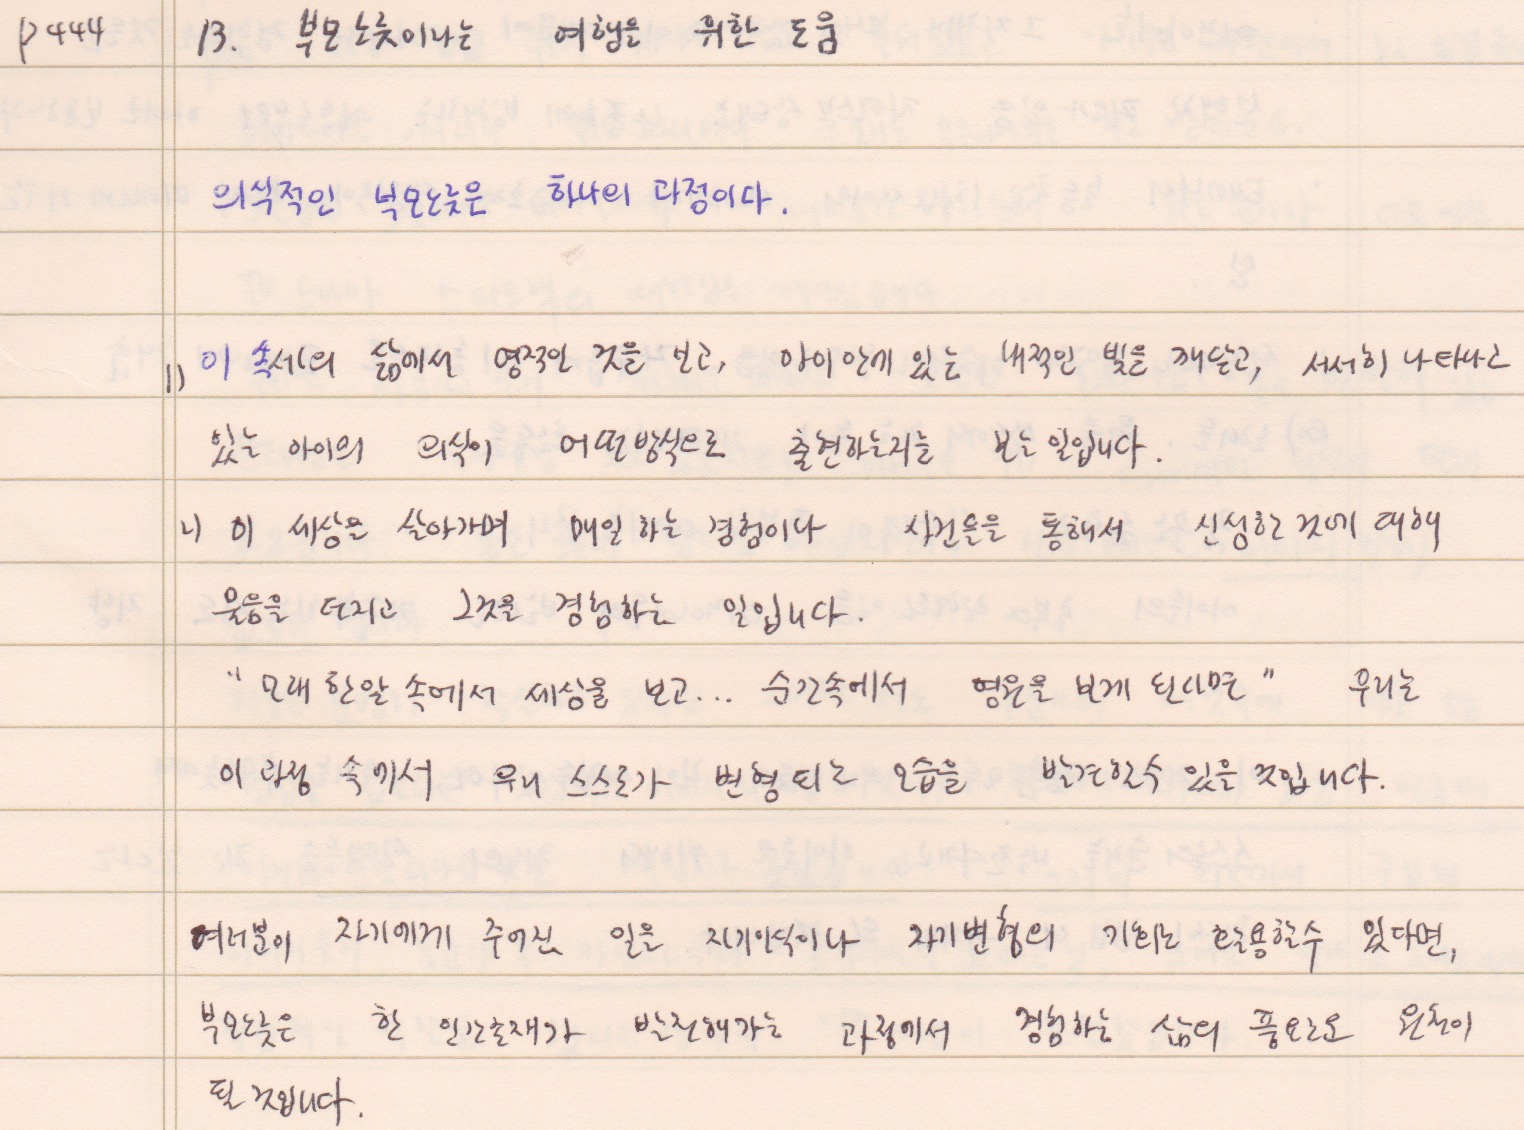 P444 13. 부모노릇이나는 여행을 위한 도움
의식적인 부모노릇은 하나의 과정이다.
1) 이 속세의 삶에서 영적인 것을 보고, 아이안에 있는 내적인 빛을 깨닫고, 서서히 나타나고
있는 아이의 의식이 어떤방식으로 출현하는지를 보는 일입니다.
2) 이 세상을 살아가며 매일 하는 경험이나 사건들을 통해서 신성한 것에 대해
물음을 던지고 그것을 경험하는 일입니다.
"모래 한알 속에서 세상을 보고... 순간속에서 영원을 보게 된다면" 우리는
이 과정 속에서 우리 스스로가 변형되는 모습을 발견할수 있을 것입니다.
여러분이 자기에게 주어진 일을 자기인식이나 자기변형의 기회로 활용할수 있다면,
부모노릇은 한 인간존재가 발전해가는 과정에서 경험하는 삶의 풍요로운 원천이
될 것입니다.